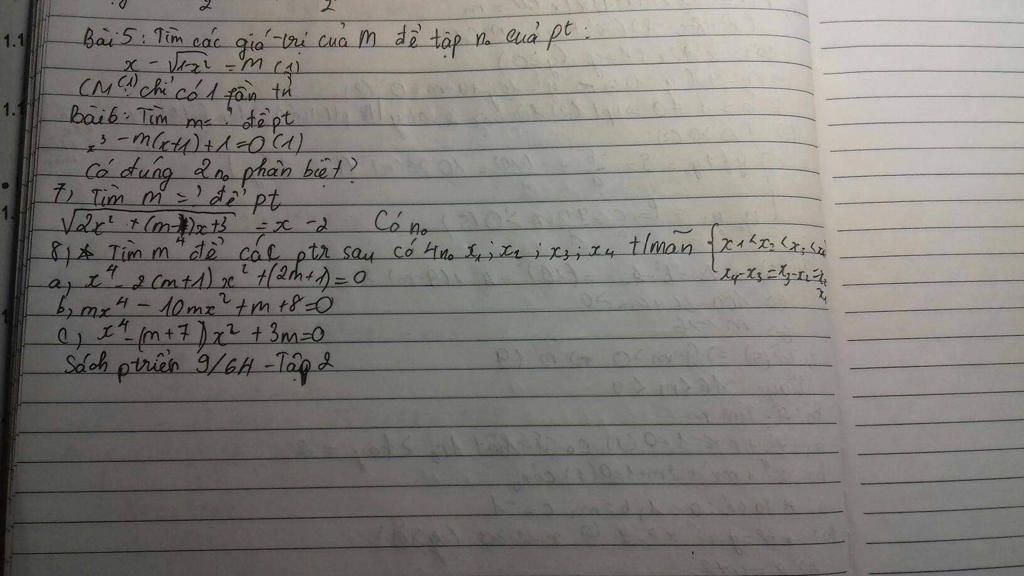 Bài 5: Tìm các giá trị của m để tập n₀ của pt:
x - √1-x² = m (1)
CM (1) chỉ có 1 phần tử
Bài 6: Tìm m = ? để pt
x³ - m(x+1) + 1 = 0 (1)
Có đúng 2 n₀ phân biệt?
7, Tìm m = ? để pt
√2x² + (m-1)x+3 = x - 2 Có n₀
8, * Tìm m để các ptr sau có 4 n₀ x₁; x₂; x₃; x₄ t/mãn { x₁ < x₂ < x₃ < x₄
x₄ - x₃ = x₃ - x₂ = x₂
x₁
a, x⁴ - 2(m+1)x² + (2m+1) = 0
b, mx⁴ - 10mx² + m + 8 = 0
c, x⁴ - (m+7)x² + 3m = 0
Sách ptriển 9/64 - Tập 2